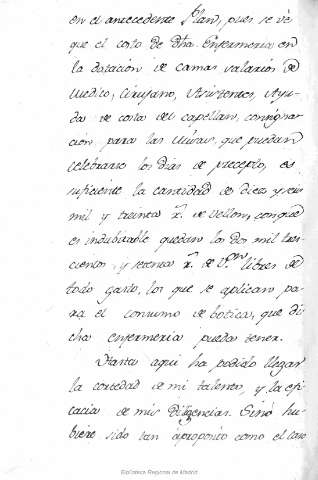 en el antecedente Plan, pues se vé
que el costo de dha Enfermeria en
la dotacion de camas salarios de
Medico, Cirujano, Asistentes, Ayu-
da de costa del capellan, consigna-
cion para las Misas, que puedan
celebrarse los dias de precepto, es
suficiente la cantidad de diez y seis
mil y treinta r.^s de vellon, conque
es indubitable quedan los dos mil tres-
cientos, y setenta r.^s de v.^on libres de
todo gasto, los que se aplican pa-
ra el consumo de botica, que di-
cha enfermeria puede tener.
Hasta aqui ha podido llegar
la cortedad de mi talento, y la efi-
cacia de mis diligencias. Sino hu-
biere sido tan aproposito como el caso
Biblioteca Regional de Madrid